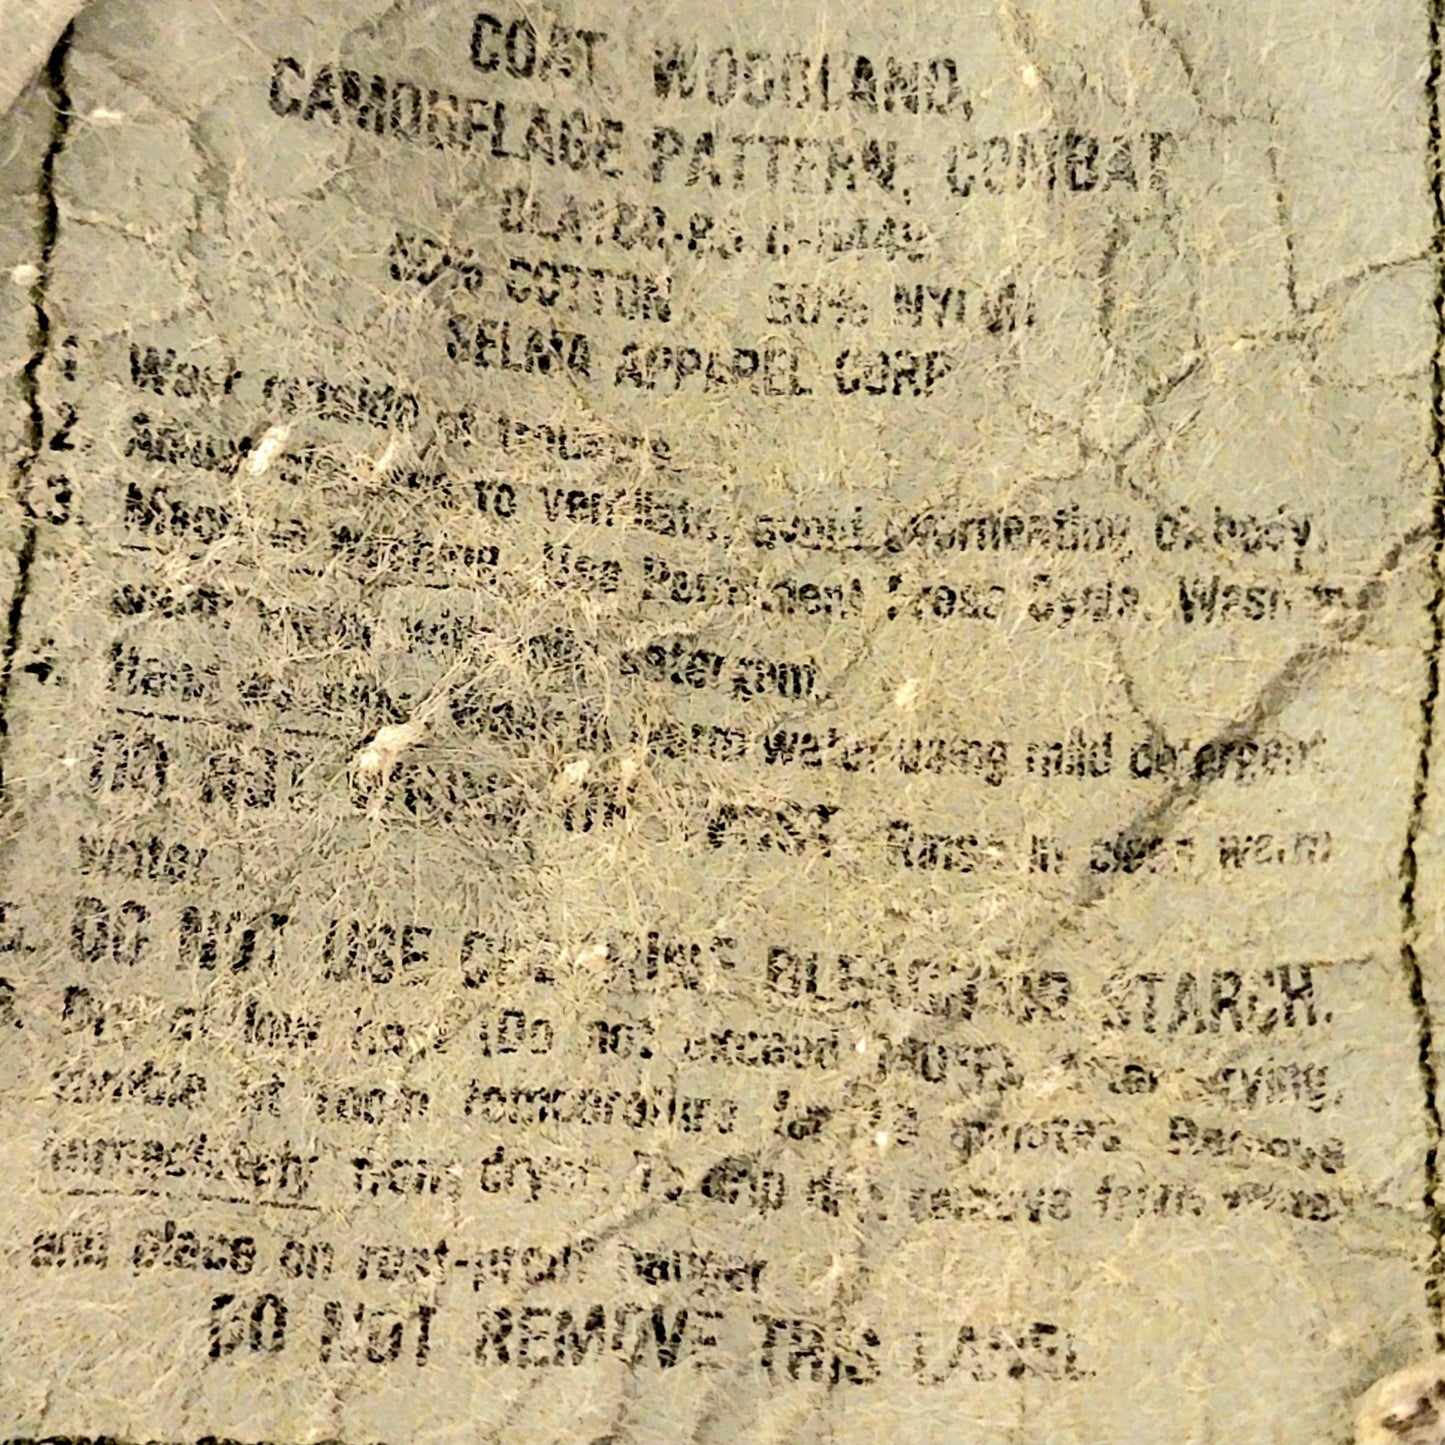 COAT, WOODLAND,
CAMOUFLAGE PATTERN, COMBAT
50% COTTON 50% NYLON
SELMA APPAREL CORP
1. Wear outside of trousers
2. to ventilate, avoid overheating of body.
3. Machine washing. Use Permanent Press Cycle. Wash in
detergent.
4. Hand in warm water using mild detergent.
DO NOT WRING OR TWIST. Rinse in clean warm
water.
5. DO NOT USE BLEACH OR STARCH.
Dry at low heat (Do not exceed After drying,
tumble at room temperature for 10 minutes. Remove
immediately from dryer. To drip dry, remove from washer
and place on rust-proof hanger
DO NOT REMOVE THIS LABEL